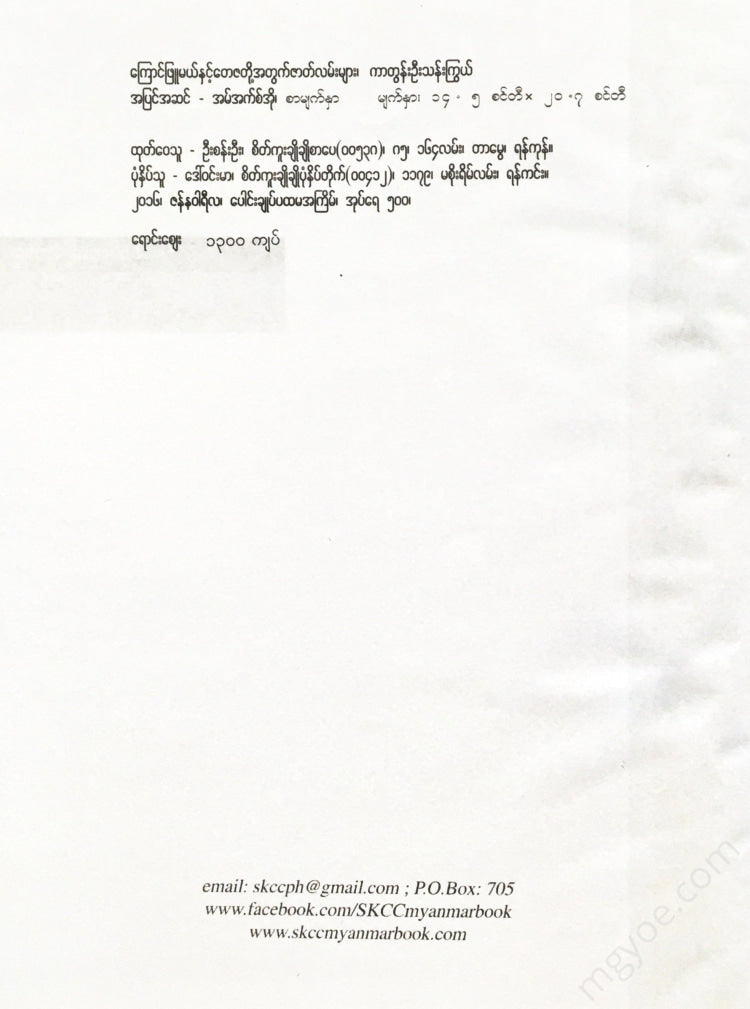 ကြောင်ဖြူမယ်နှင့်တေဇတို့အတွက်ဇာတ်လမ်းများ၊ ကာတွန်းဦးသန်းကြွယ်
အပြင်အဆင် - အမ်အက်စ်အို၊ စာမျက်နှာ မျက်နှာ၊ ၁၄.၅ စင်တီ × ၂၀.၇ စင်တီ
ထုတ်ဝေသူ - ဦးစန်းဦး၊ စိတ်ကူးချိုချိုစာပေ(၀၀၅၃၈)၊ ၈၅၊ ၁၆၄လမ်း၊ တာမွေ၊ ရန်ကုန်။
ပုံနှိပ်သူ - ဒေါ်ဝင်းမာ၊ စိတ်ကူးချိုချိုပုံနှိပ်တိုက်(၀၀၄၁၂)၊ ၁၁၇၉၊ မစိုးရိမ်လမ်း၊ ရန်ကင်း။
၂၀၁၆၊ ဇန်နဝါရီလ၊ ပေါင်းချုပ်ပထမအကြိမ်၊ အုပ်ရေ ၅၀၀၊
ရောင်းဈေး ၁၃၀၀ ကျပ်
email: skccph@gmail.com ; P.O.Box: 705
www.facebook.com/SKCCmyanmarbook
www.skccmyanmarbook.com
mgyoe.com